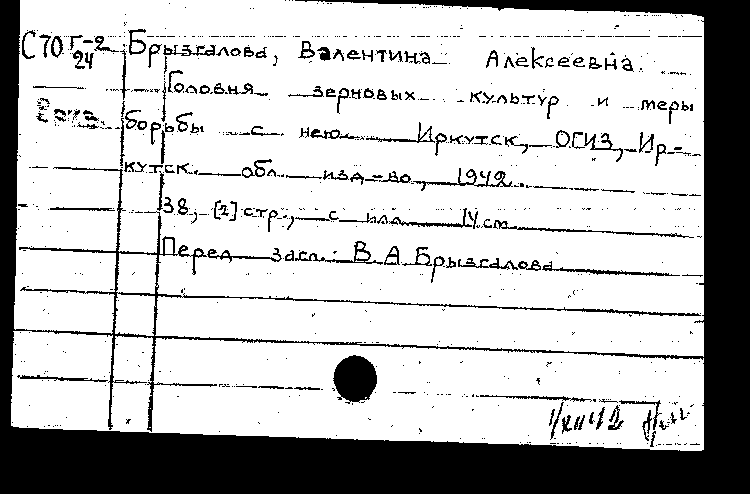 С70 Г-2 Брызгалова, Валентина Алексеевна.
24
Головня зерновых культур и меры
борьбы с нею. Иркутск, ОГИЗ, Ир-
кутск. обл. изд-во, 1942.
38, [2] стр., с илл. 14 см.
Перед загл.: В. А. Брызгалова
1/XII 42